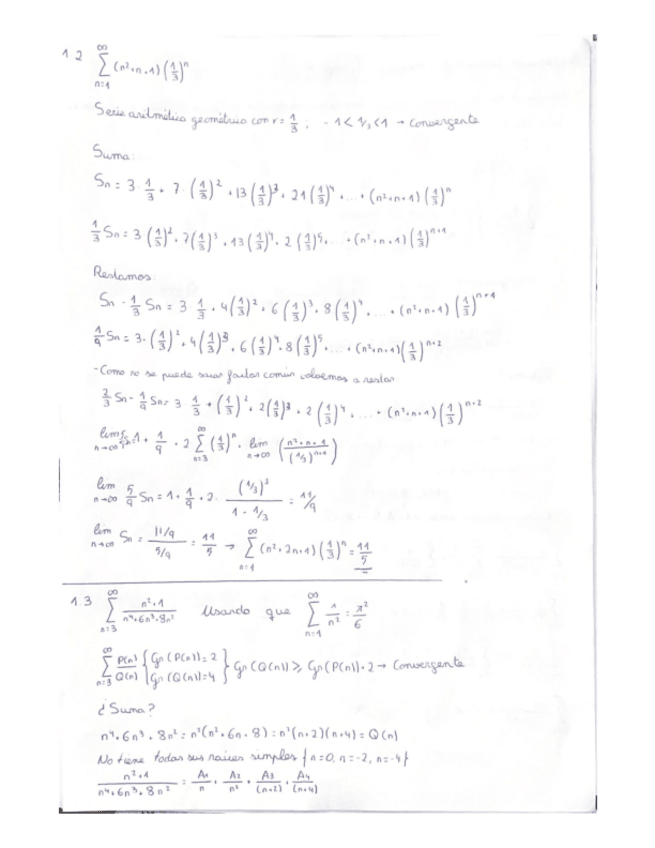 1.2 ∑_{n=1}^{∞} (n²+n+1) (1/3)^n
Serie aritmético geométrica con r = 1/3 ; -1 < 1/3 < 1 → Convergente
Suma:
Sn = 3 · 1/3 + 7 · (1/3)² + 13 (1/3)³ + 21 (1/3)⁴ + ... + (n²+n+1) (1/3)^n
1/3 Sn = 3 (1/3)² + 7 (1/3)³ + 13 (1/3)⁴ + 2 (1/3)⁵ + ... + (n²+n+1) (1/3)^{n+1}
Restamos:
Sn - 1/3 Sn = 3 · 1/3 + 4 (1/3)² + 6 (1/3)³ + 8 (1/3)⁴ + ... + (n²+n+1) (1/3)^{n+1}
1/9 Sn = 3 · (1/3)² + 4 (1/3)³ + 6 (1/3)⁴ + 8 (1/3)⁵ + ... + (n²+n+1) (1/3)^{n+2}
- Como no se puede sacar factor común volvemos a restar
2/3 Sn - 1/9 Sn = 3 · 1/3 + (1/3)² + 2 (1/3)³ + 2 (1/3)⁴ + ... + (n²+n+1) (1/3)^{n+2}
lim_{n→∞} = 1 + 1/9 + 2 ∑_{n=3}^{∞} (1/3)^n + lim_{n→∞} ((n²+n+1)/(1/3)^{n+1})
lim_{n→∞} 5/9 Sn = 1 + 1/9 + 2 · (1/3)³/(1 - 1/3) = 11/9
lim_{n→∞} Sn = (11/9)/(5/9) = 11/5 → ∑_{n=1}^{∞} (n²+2n+1) (1/3)^n = 11/5
1.3 ∑_{n=3}^{∞} (n²+1)/(n⁴+6n³+8n²) Usando que ∑_{n=1}^{∞} 1/n² = π²/6
∑_{n=3}^{∞} P(n)/Q(n) { Gr(P(n)) = 2 Gr(Q(n)) = 4 } Gr(Q(n)) ≥ Gr(P(n)) + 2 → Convergente
¿Suma?
n⁴+6n³+8n² = n²(n²+6n+8) = n²(n+2)(n+4) = Q(n)
No tiene todas sus raíces simples {n=0, n=-2, n=-4}
(n²+1)/(n⁴+6n³+8n²) = A1/n + A2/n² + A3/(n+2) + A4/(n+4)